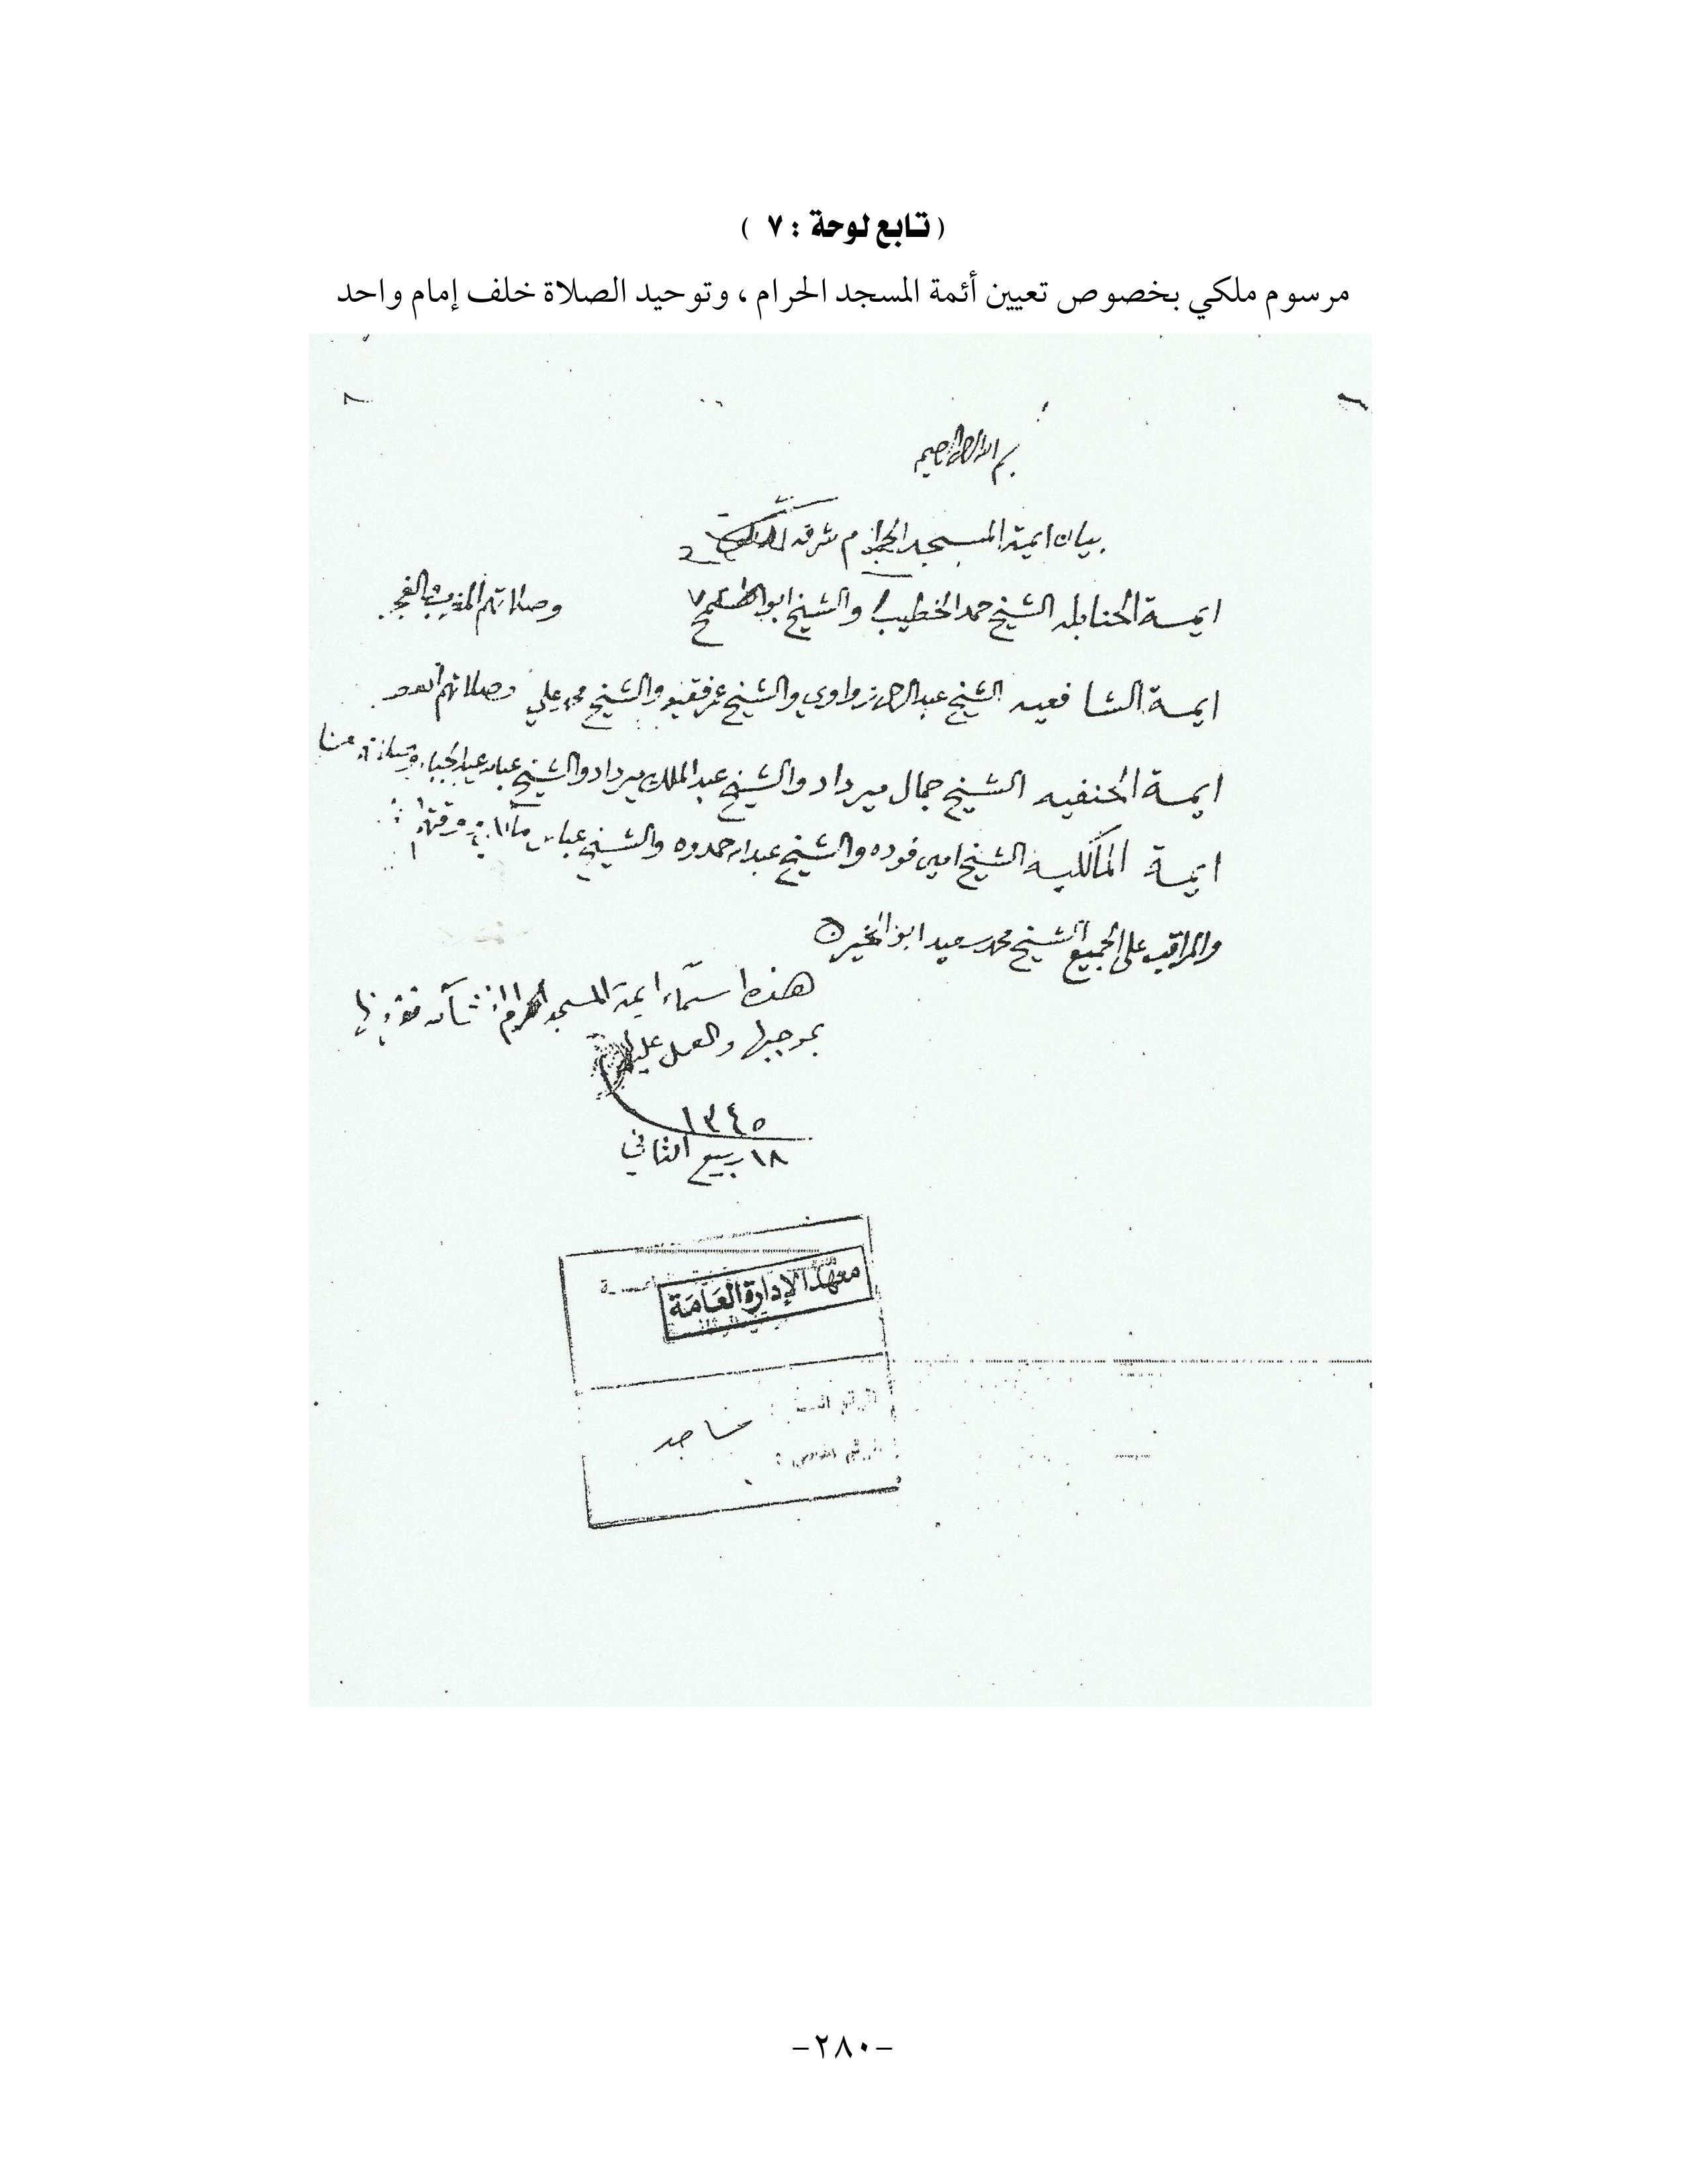 ( تابع لوحة : ٧ )
مرسوم ملكي بخصوص تعيين أئمة المسجد الحرام ، وتوحيد الصلاة خلف إمام واحد
بسم الله الرحمن الرحيم
بيان ايمة المسجد الحرام شرفه الله
ايمة الحنابله الشيخ حمد الخطيب والشيخ ابو السمح وصلاتهم المغرب والفجر
ايمة الشافعيه الشيخ عبدالرحمن زواوي والشيخ عمر فقيه والشيخ محمد علي وصلاتهم
ايمة الحنفيه الشيخ جمال ميرداد والشيخ عبدالملك ميرداد والشيخ
ايمة المالكيه الشيخ امين فوده والشيخ عبدالله حمدوه والشيخ عباس
والمراقب على الجميع الشيخ محمد سعيد ابو الخير
هذه اسماء ايمة المسجد الحرام
بموجبها والعمل عليها
١٣٤٥
١٨ ربيع الثاني
معهد الإدارة العامة
مساجد
-٢٨٠-